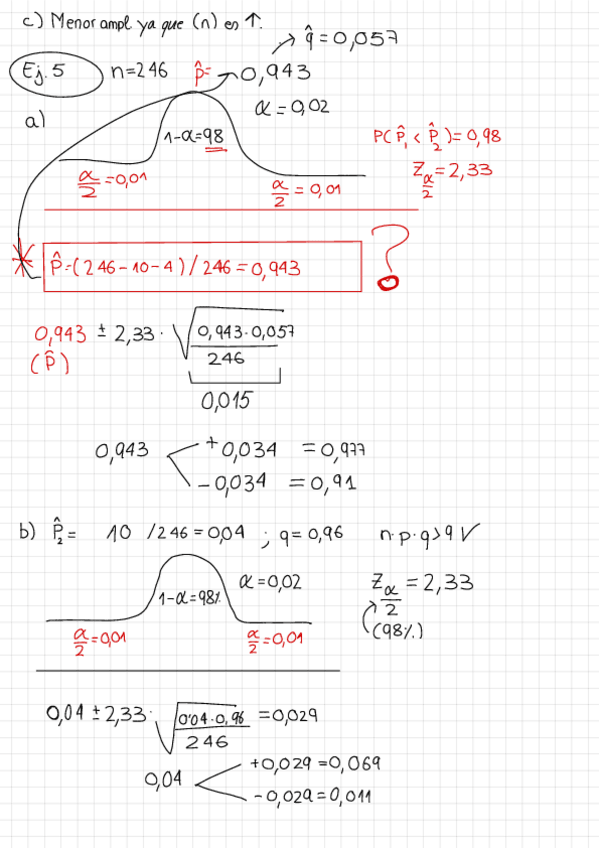 c) Menor ampl ya que (n) es ↑.
→ q̂ = 0,057
Ej. 5 n=246 p̂= → 0,943
α = 0,02
a)
1-α=98
P(P̂₁ < P̂₂)= 0,98
Zα/2 = 2,33
α/2 = 0,01
α/2 = 0,01
* P̂=(246-10-4)/246 = 0,943 ?
0,943 ± 2,33 · √(0,943·0,057 / 246)
(P̂)
0,015
0,943 +0,034 = 0,977
-0,034 = 0,91
b) P̂₂= 10 /246=0,04 ; q=0,96 n·p·q>9 ✓
1-α=98%
α=0,02
Zα/2 = 2,33
(98%)
α/2=0,01
α/2=0,01
0,04 ± 2,33· √(0'04·0,96 / 246) =0,029
0,04 +0,029 =0,069
-0,029=0,011